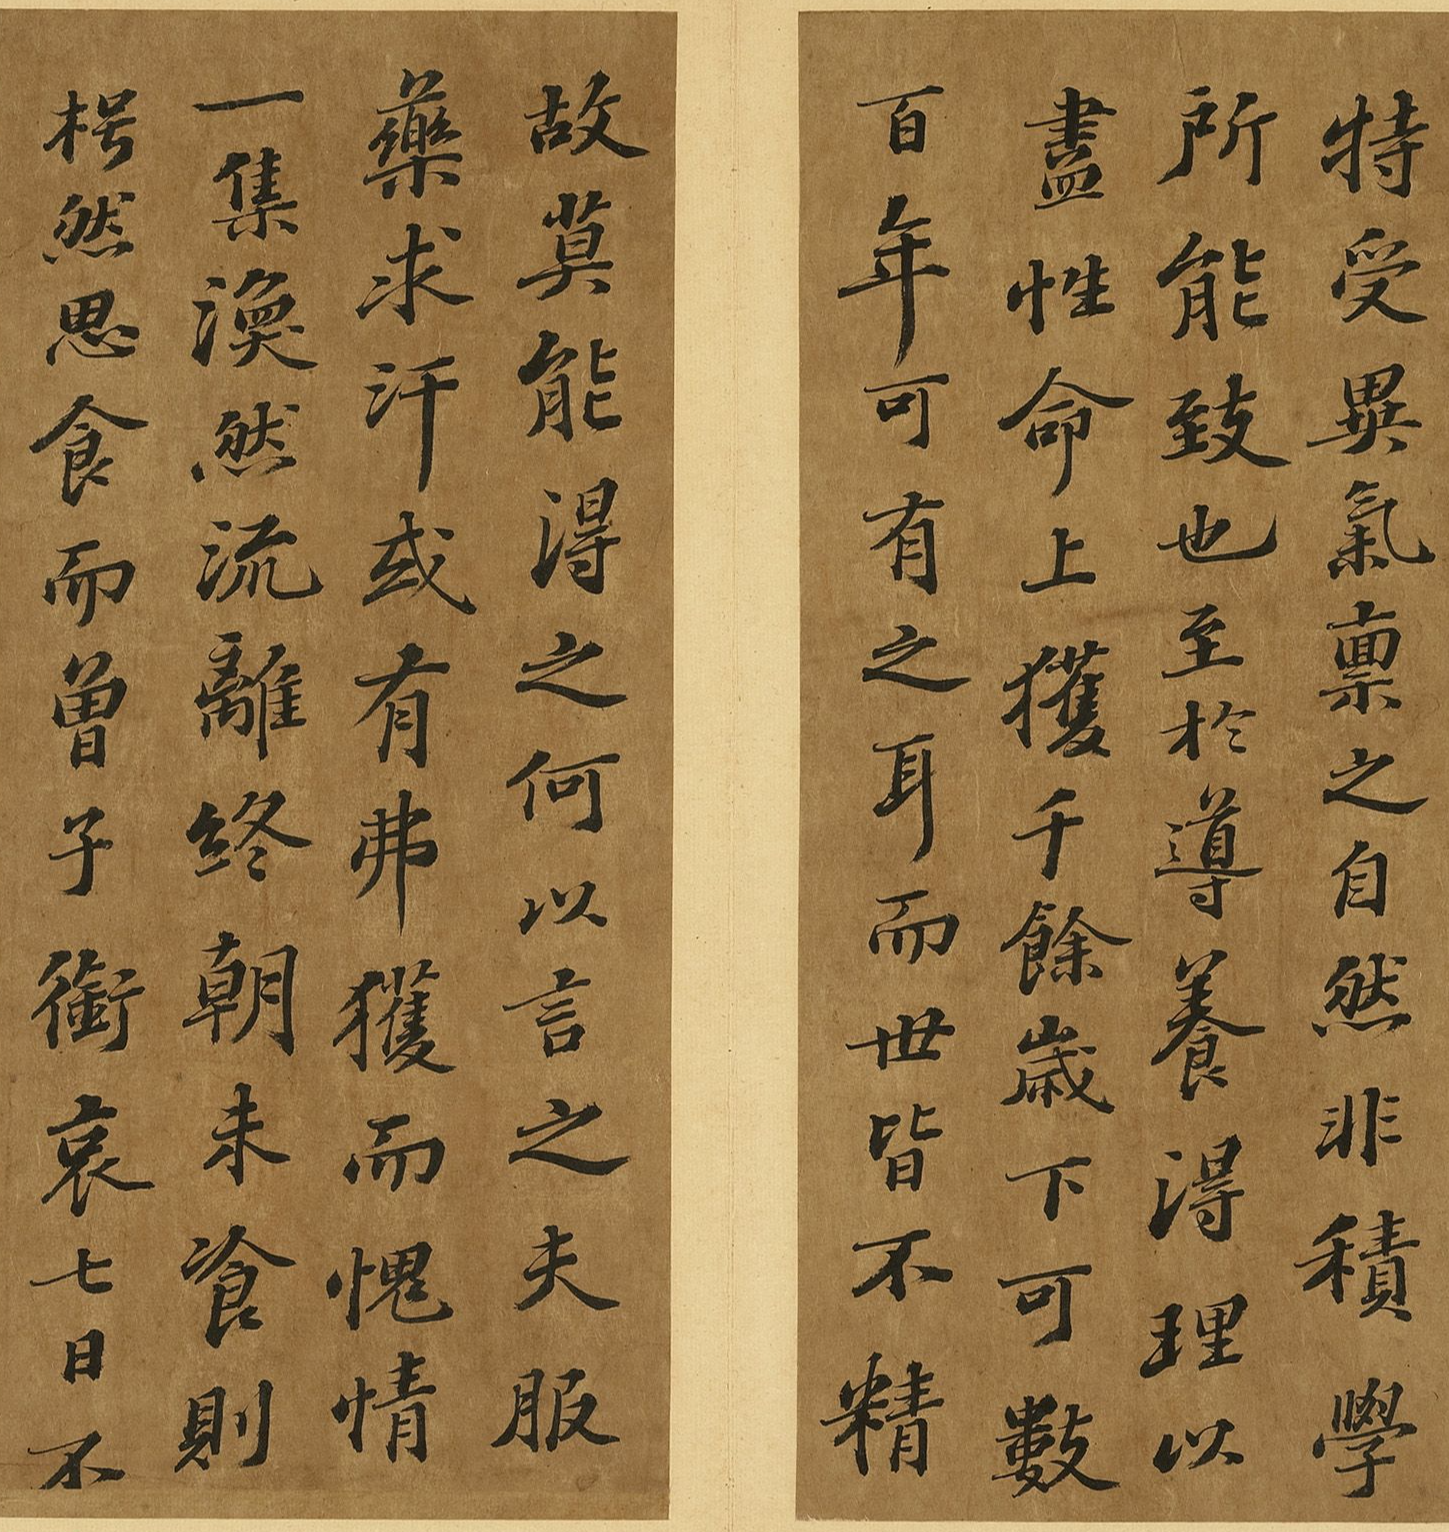 特受異氣稟之自然非積學
所能致也至於導養得理以
盡性命上獲千餘歲下可數
百年可有之耳而世皆不精
故莫能得之何以言之夫服
藥求汗或有弗獲而愧情
一集渙然流離終朝未飡則
枵然思食而曾子銜哀七日不